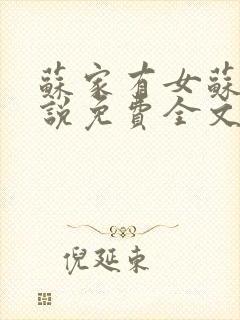 蘇家有女蘇
說免費全文
倪延東